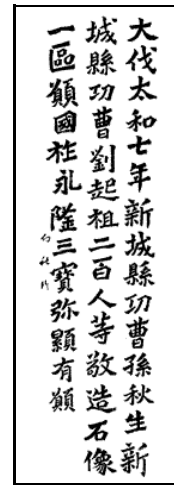 大伐太和七年新城縣功曹孫秋生新
城縣功曹劉起祖二百人等敬造石像
一區願國祚永隆三寶弥顯有願